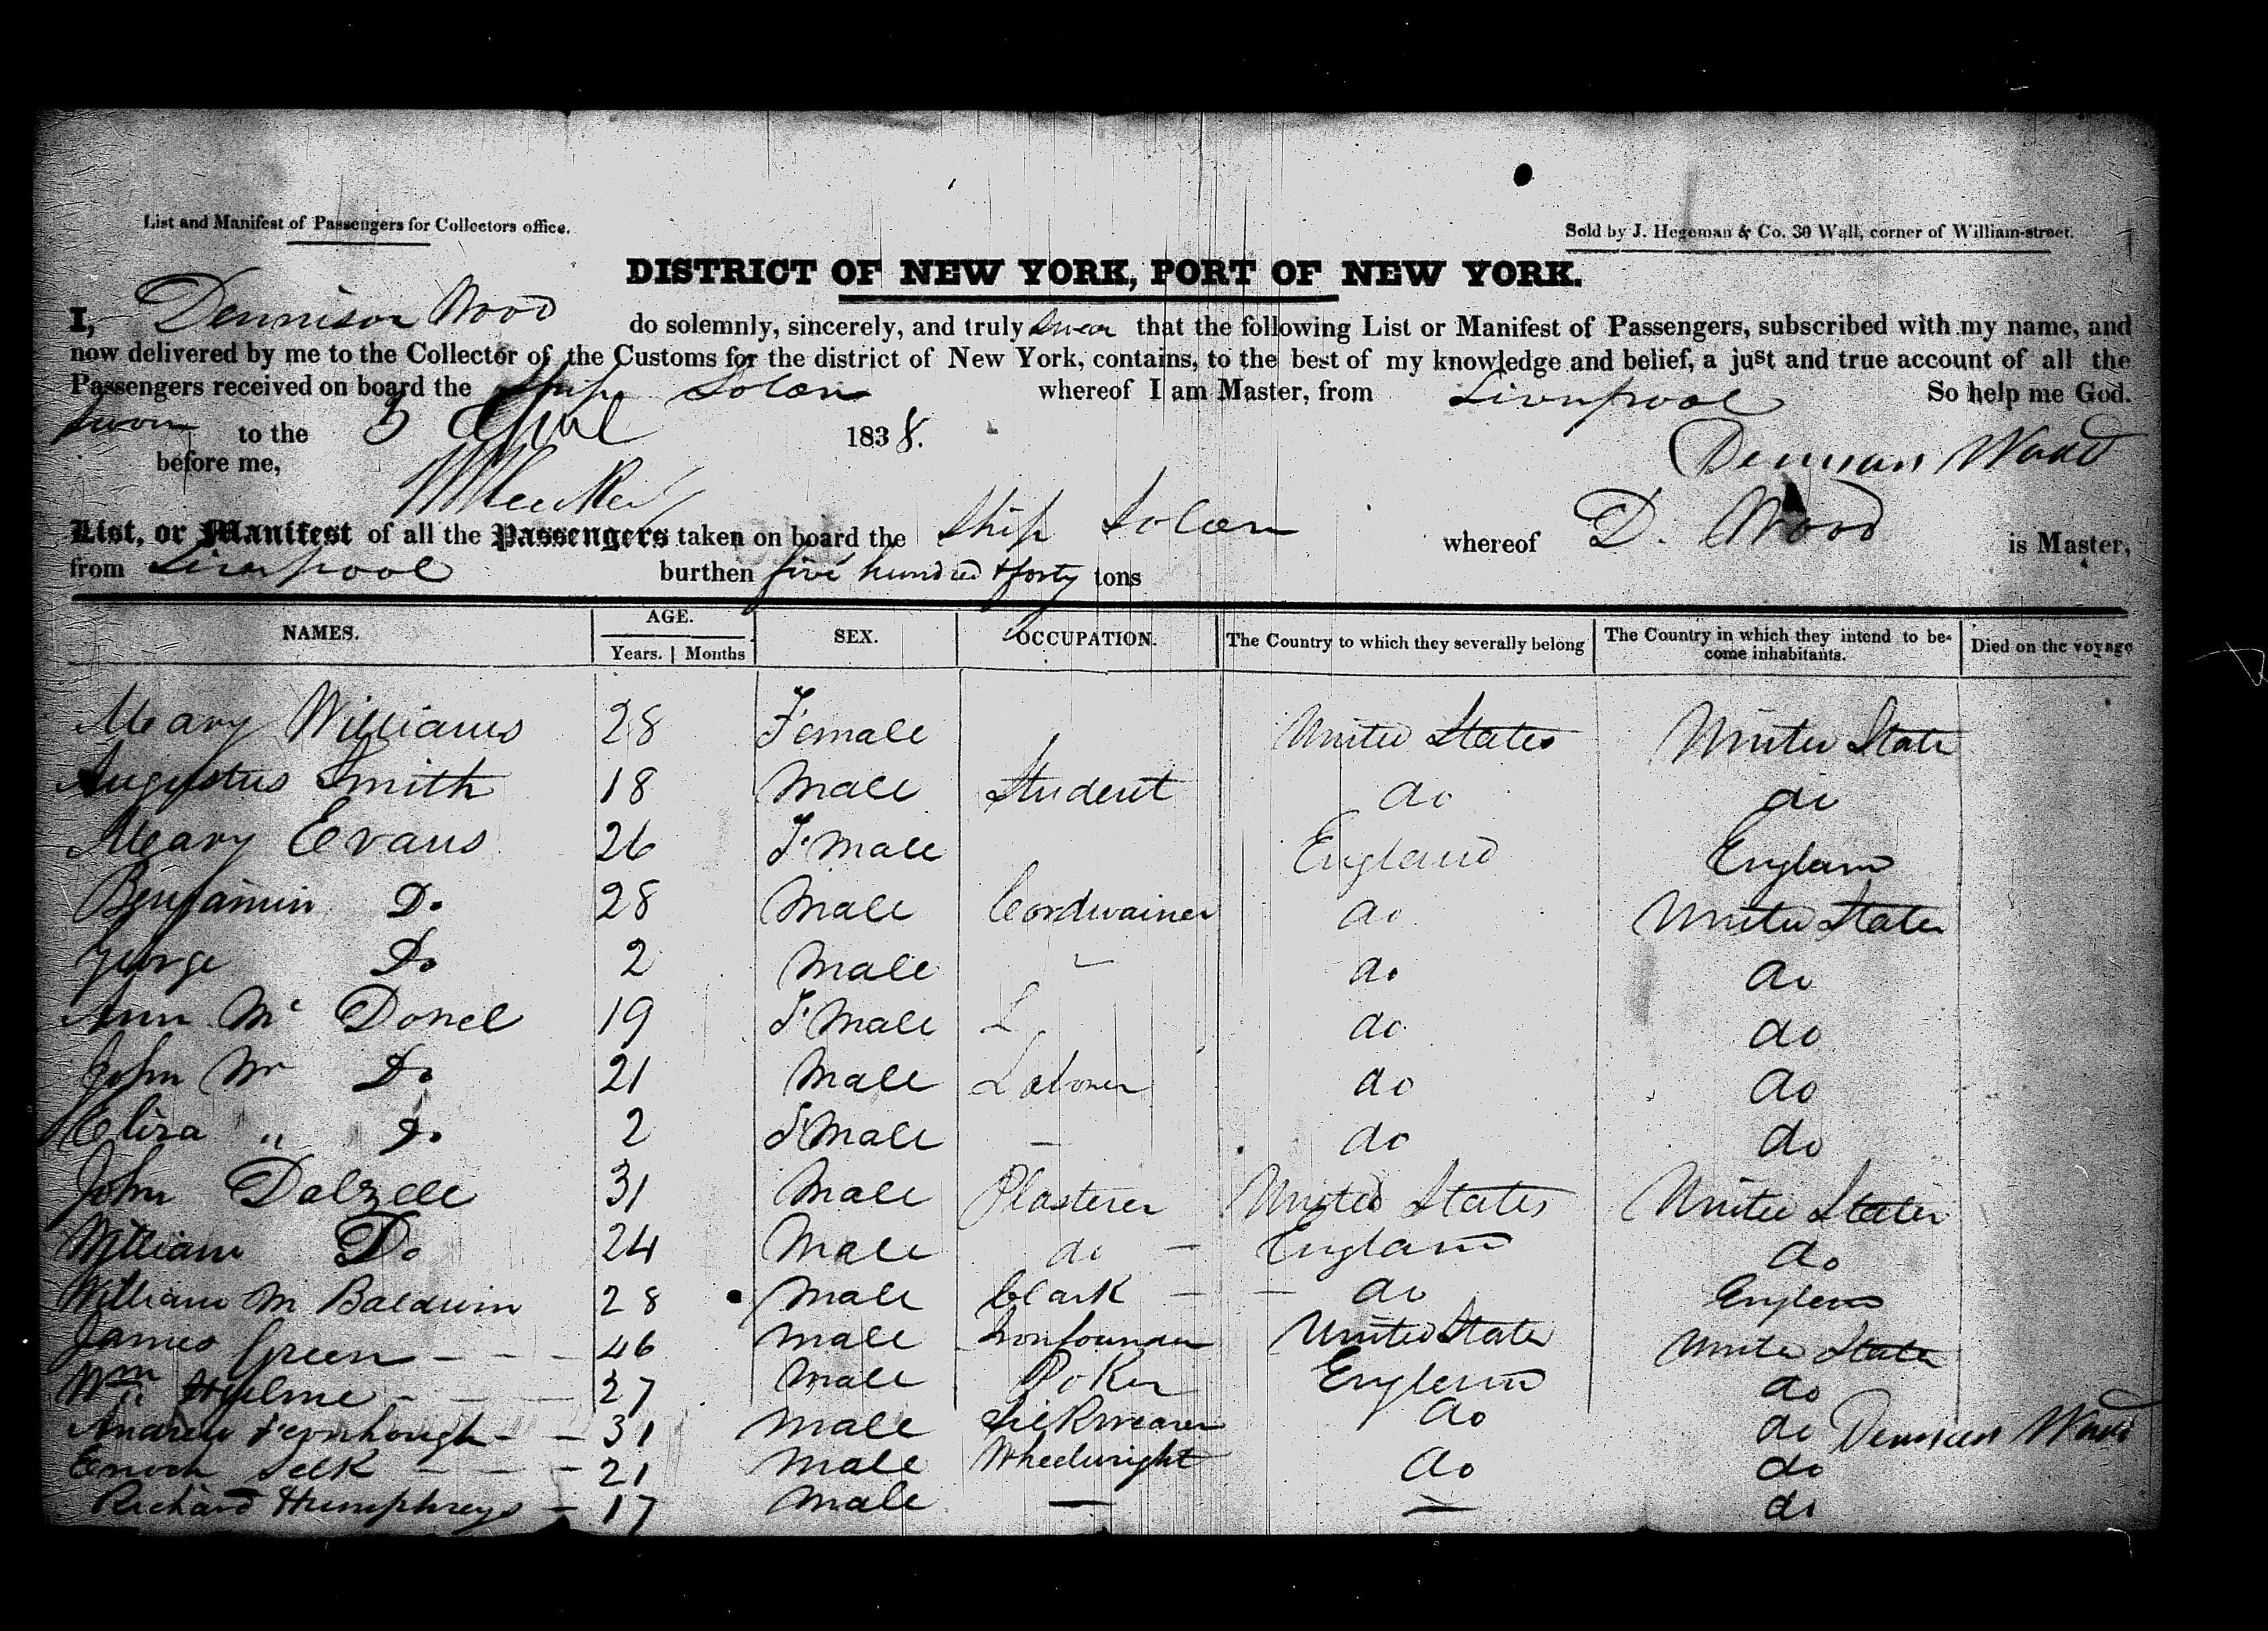 List and Manifest of Passengers for Collectors office.
Sold by J. Hegeman & Co. 30 Wall, corner of William-street.
DISTRICT OF NEW YORK, PORT OF NEW YORK.
I, Dennison Wood do solemnly, sincerely, and truly swear that the following List or Manifest of Passengers, subscribed with my name, and
now delivered by me to the Collector of the Customs for the district of New York, contains, to the best of my knowledge and belief, a just and true account of all the
Passengers received on board the Ship Solon whereof I am Master, from Liverpool So help me God.
Sworn to the 5 April 1838.
before me, Dennison Wood
List, or Manifest of all the Passengers taken on board the Ship Solon whereof D. Wood is Master,
from Liverpool burthen five hundred & forty tons
NAMES. AGE. SEX. OCCUPATION. The Country to which they severally belong The Country in which they intend to be-come inhabitants. Died on the voyage
Years. Months
Mary Williams 28 Female United States United State
Augustus Smith 18 Male Student do do
Mary Evans 26 F. Male England England
Benjamin Do 28 Male Cordwainer do United States
George Do 2 Male do do
Ann Mc Donel 19 F. Male do do
John Mc Do 21 Male Laborer do do
Eliza " Do 2 F Male — do do
John Dalzell 31 Male Plasterer United States United States
William Do 24 Male do — England do
William M Baldwin 28 Male Clark — — do England
James Green — — — 46 Male Ironfounder United State United State
Wm Hulme — — — 27 Male England do
Andrew Fernhough — — 31 Male Silkweaver do do Dennison Wood
Enoch Selk — — — 21 Male Wheelwright do do
Richard Humphreys — 17 Male — — do